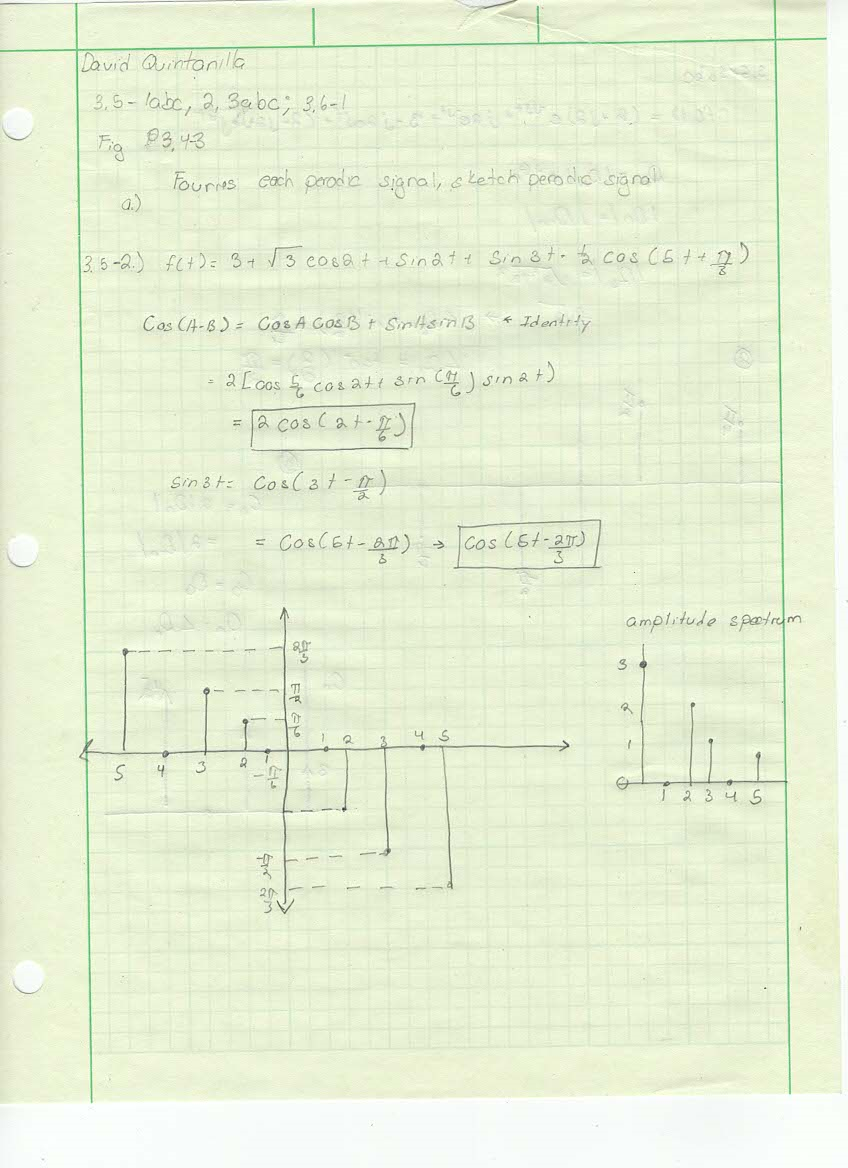 David Quintanilla
3.5-1abc, 2, 3abc; 3.6-1
Fig P3.4-3
Fourries each perodic signal, sketch perodic signal
a.)
3.5-2.) f(t) = 3 + √3 cos2t + sin2t + sin3t - 1/2 cos(5t + π/3)
Cos(A-B) = CosA CosB + SinA sinB ← Identity
= 2[cos 5/6 cos2t + sin(π/6) sin2t)
= 2cos(2t - π/6)
sin3t = Cos(3t - π/2)
= Cos(5t - 2π/3) → cos(5t - 2π/3)
amplitude spectrum
2π/3
π/2
π/6
5 4 3 2 1 1 2 3 4 5
-π/6
π/2
2π/3
3
2
1
0
1 2 3 4 5